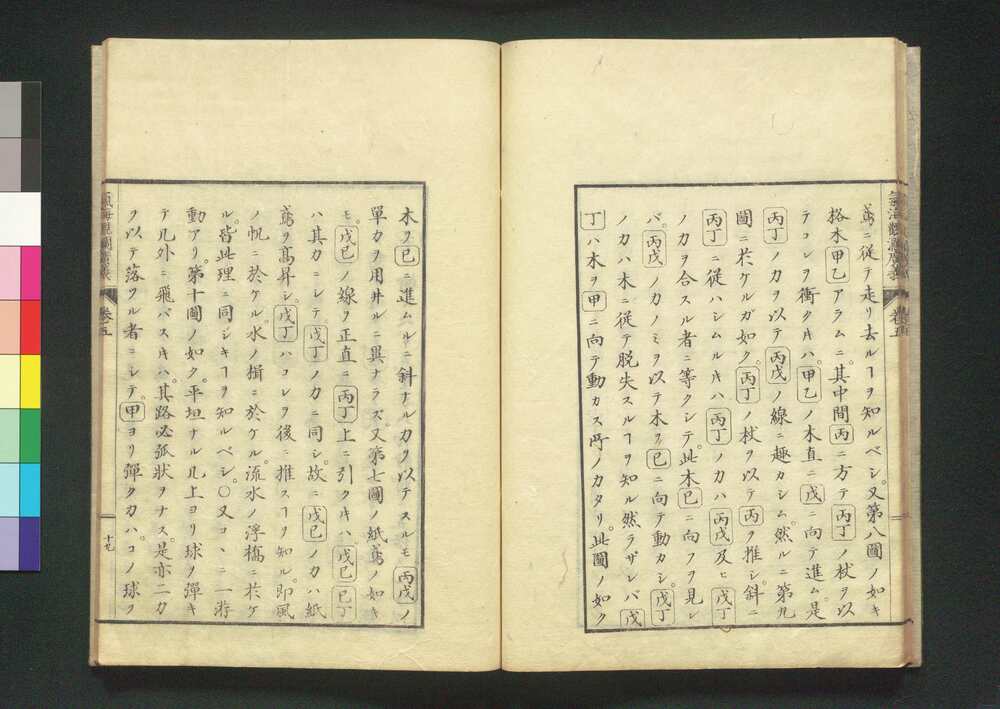 鳶ニ從テ走リ去ルヿヲ知ルベシ。又第八圖ノ如キ
格木甲乙アラムニ。其中間丙ニ方テ丙丁ノ杖ヲ以
テコレヲ衝クキハ。甲乙ノ木直ニ戊ニ向テ進ム。是
丙丁ノ力ヲ以テ丙戊ノ線ニ趣カシム。然ルニ第九
圖ニ於ケルガ如ク。丙丁ノ杖ヲ以テ丙ヲ推シ。斜ニ
丙丁ニ從ハシムルキハ丙丁ノ力ハ丙戊及ヒ戊丁
ノ力ヲ合スル者ニ等クシテ。此木巳ニ向フヲ見レ
バ。丙戊ノ力ノミヲ以テ木ヲ巳ニ向テ動カシ。戊丁
ノ力ハ木ニ從テ脱失スルヿヲ知ル然ラザレバ戊
丁ハ木ヲ甲ニ向テ動カス所ノ力タリ。此圖ノ如ク
木ヲ巳ニ進ムルニ斜ナル力ヲ以テスルモ丙戊ノ
單力ヲ用井ルニ異ナラズ。又第七圖ノ紙鳶ノ如キ
モ。戊巳ノ線ヲ正直ニ丙丁上ニ引クキハ。戊巳巳丁
ハ其力ニシテ戊丁ノ力ニ同シ。故ニ戊巳ノ力ハ紙
鳶ヲ高昇シ。戊丁ハコレヲ後ニ推スヿヲ知ル。即風
ノ帆ニ於ケル。水ノ楫ニ於ケル。流水ノ浮橋ニ於ケ
ル。皆此理ニ同シキヿヲ知ルベシ。○又コヽニ一游
動アリ。第十圖ノ如ク。平坦ナル几上ヨリ球ヲ彈キ
テ几外ニ飛バスキハ。其路必弧狀ヲナス。是亦二力
ヲ以テ落ツル者ニシテ。甲ヨリ彈ク力ハ。コノ球ヲ
卷五
十九